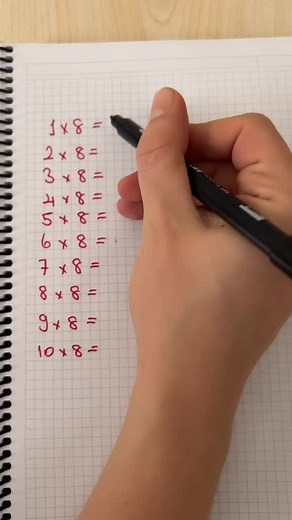 1 × 8 =
2 × 8 =
3 × 8 =
4 × 8 =
5 × 8 =
6 × 8 =
7 × 8 =
8 × 8 =
9 × 8 =
10 × 8 =